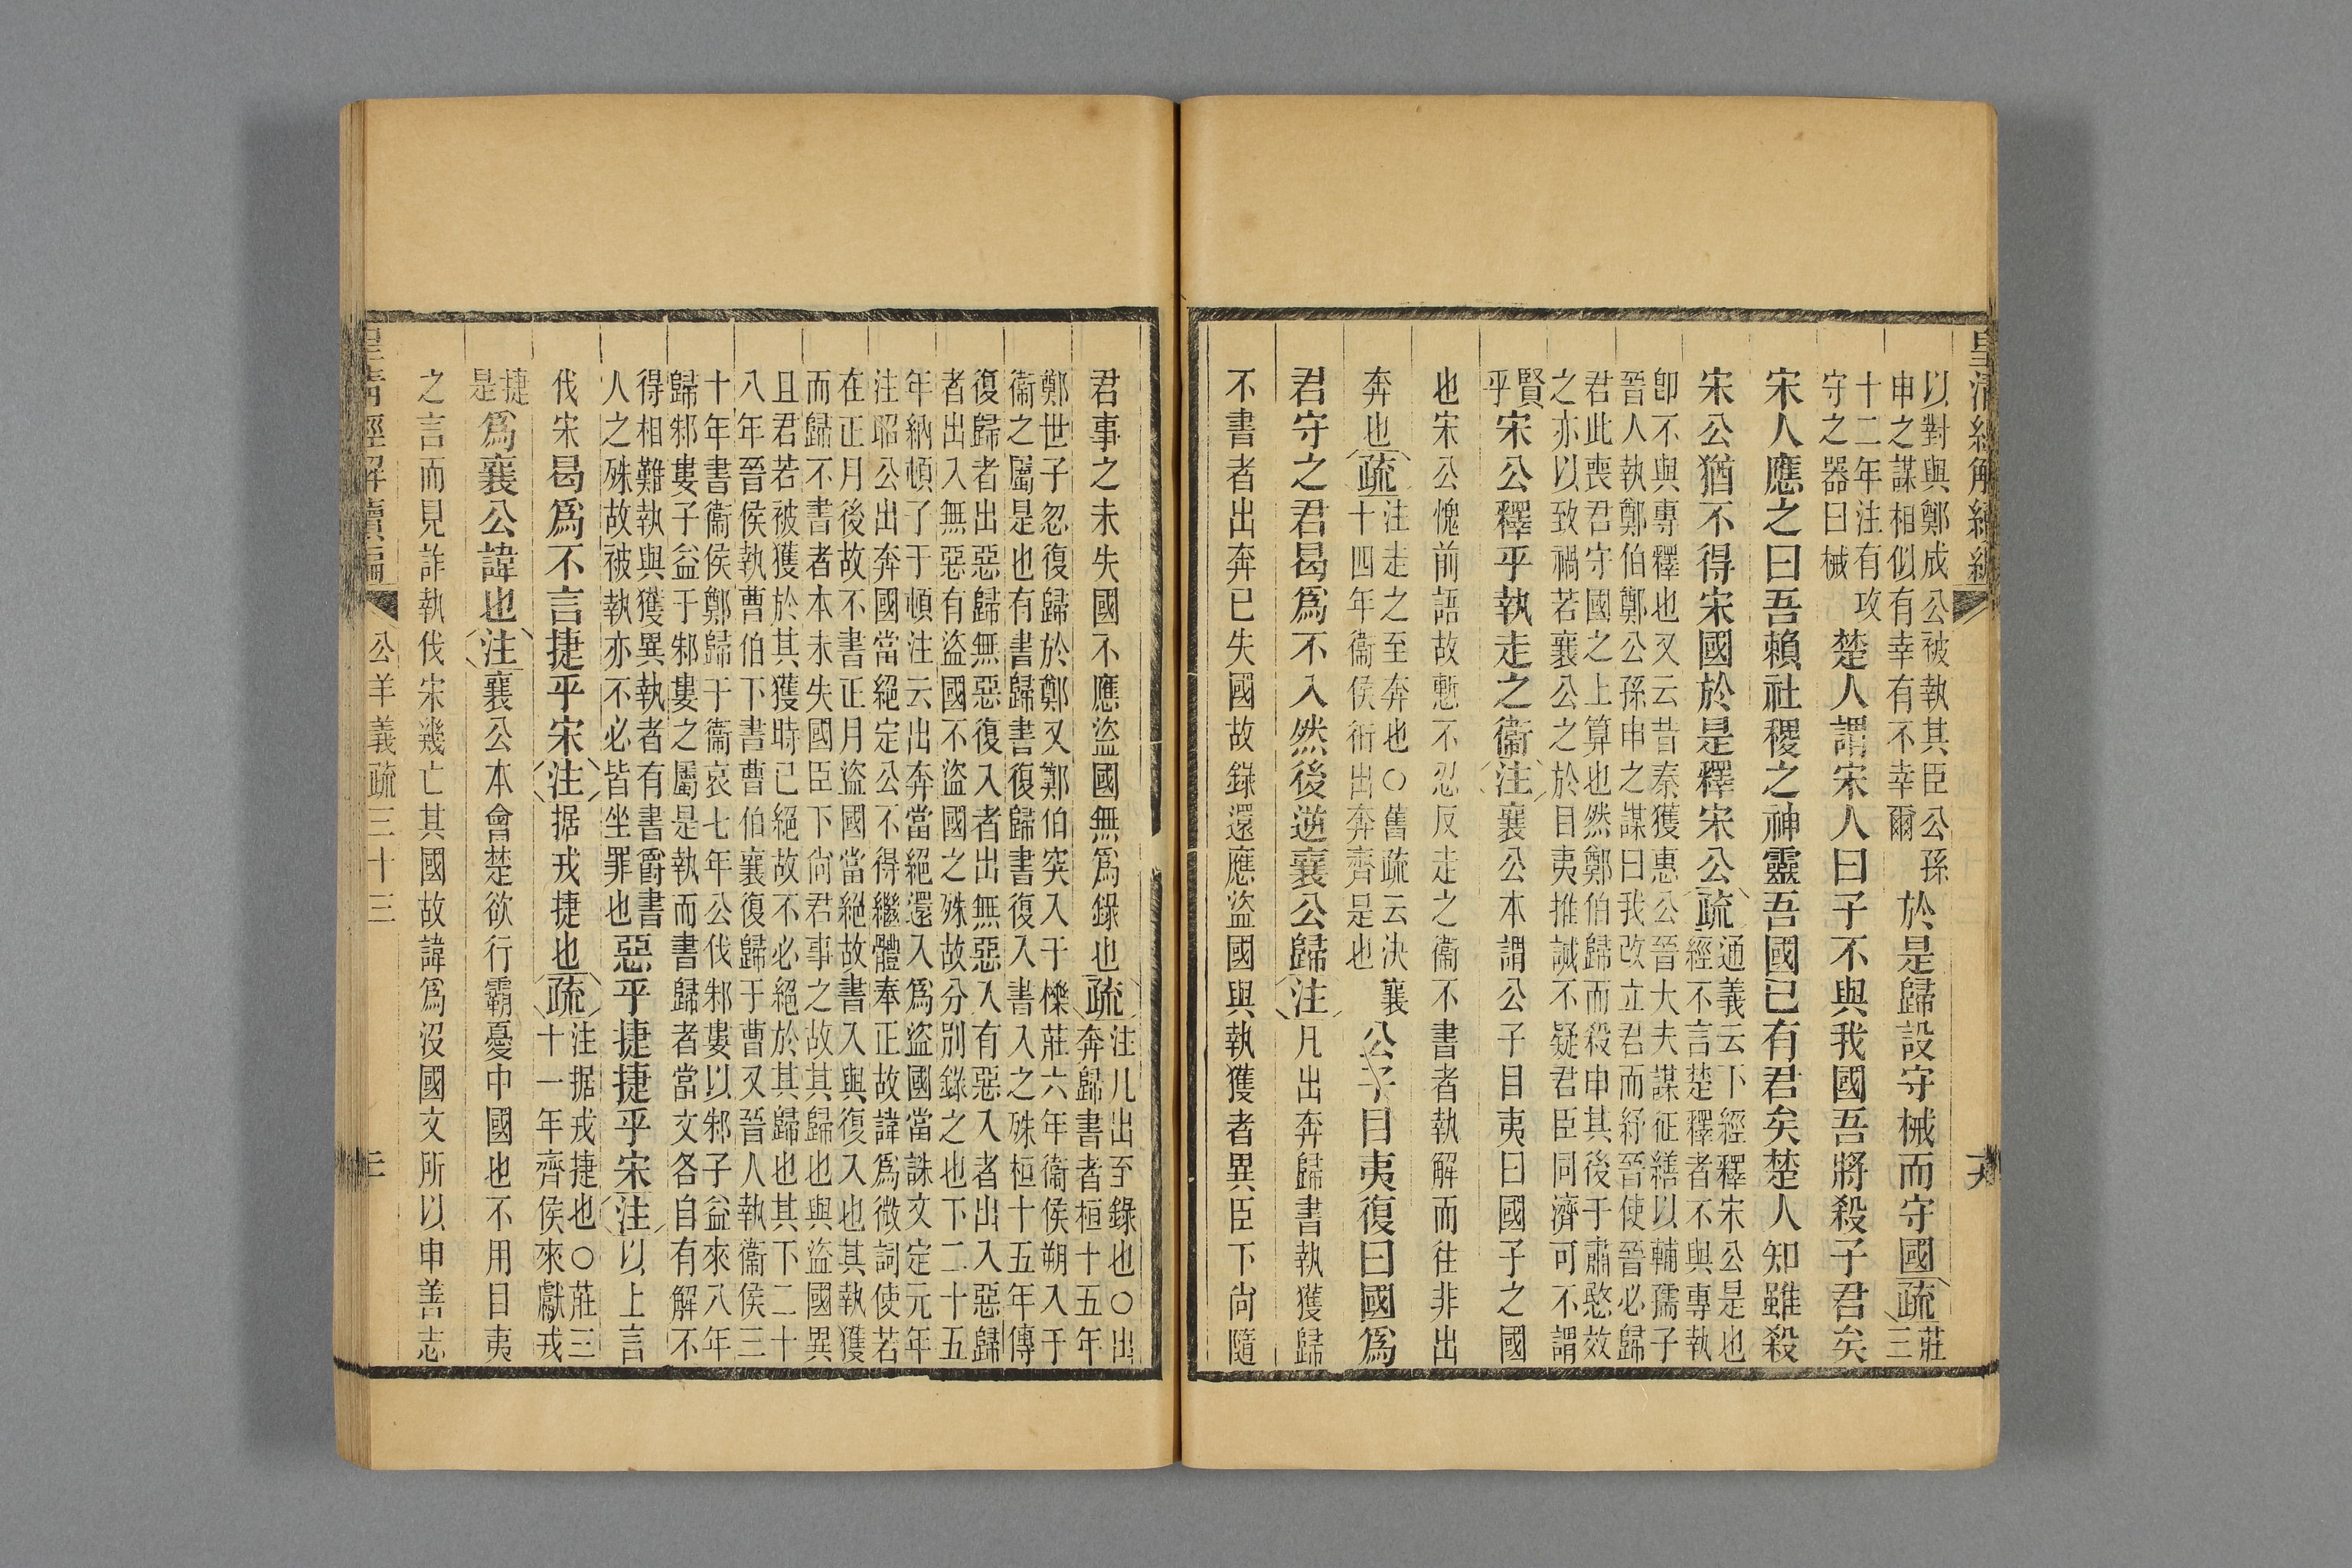 皇清經解續編
以對與鄭成公被執其臣公孫
申之謀相似有幸有不幸爾
於是歸設守械而守國疏
莊三
十二年注有攻
守之器曰械
楚人謂宋人曰子不與我國吾將殺子君矣
宋人應之曰吾賴社稷之神靈吾國已有君矣楚人知雖殺
宋公猶不得宋國於是釋宋公疏
通義云下經釋宋公是也
經不言楚釋者不與專執
卽不與專釋也又云昔秦獲惠公晉大夫謀征繕以輔孺子
晉人執鄭伯鄭公孫申之謀曰我改立君而紓晉使晉必歸
君此喪君守國之上算也然鄭伯歸而殺申其後于肅愍效
之亦以致禍若襄公之於目夷推誠不疑君臣同濟可不謂
賢乎
宋公釋乎執走之衞注襄公本謂公子目夷曰國子之國
也宋公愧前語故慙不忍反走之衞不書者執解而往非出
奔也疏
注走之至奔也○舊疏云決襄
十四年衞侯衎出奔齊是也
公子目夷復曰國爲
君守之君曷爲不入然後逆襄公歸注凡出奔歸書執獲歸
不書者出奔已失國故錄還應盜國與執獲者異臣下尚隨
君事之未失國不應盜國無爲錄也疏
注凡出至錄也○出
奔歸書者桓十五年
鄭世子忽復歸於鄭又鄭伯突入于櫟莊六年衞侯朔入于
衞之屬是也有書歸書復歸書復入書入之殊桓十五年傳
復歸者出惡歸無惡復入者出無惡入有惡入者出入惡歸
者出入無惡有盜國不盜國之殊故分別錄之也下二十五
年納頓子于頓注云出奔當絕還入爲盜國當誅文定元年
注昭公出奔國當絕定公不得繼體奉正故諱爲微詞使若
在正月後故不書正月盜國當絕故書入與復入也其執獲
而歸不書者本未失國臣下尚君事之故其歸也與盜國異
且君若被獲於其獲時已絕故不必絕於其歸也其下二十
八年晉侯執曹伯下書曹伯襄復歸于曹又晉人執衞侯三
十年書衞侯鄭歸于衞哀七年公伐邾婁以邾子益來八年
歸邾婁子益于邾婁之屬是執而書歸者當文各自有解不
得相難執與獲異執者有書爵書
人之殊故被執亦不必皆坐罪也
惡乎捷捷乎宋注以上言
伐宋曷爲不言捷乎宋注据戎捷也疏
注据戎捷也○莊三
十一年齊侯來獻戎
捷是
爲襄公諱也注襄公本會楚欲行霸憂中國也不用目夷
之言而見詐執伐宋幾亡其國故諱爲沒國文所以申善志
皇清經解續編
公羊義疏三十三